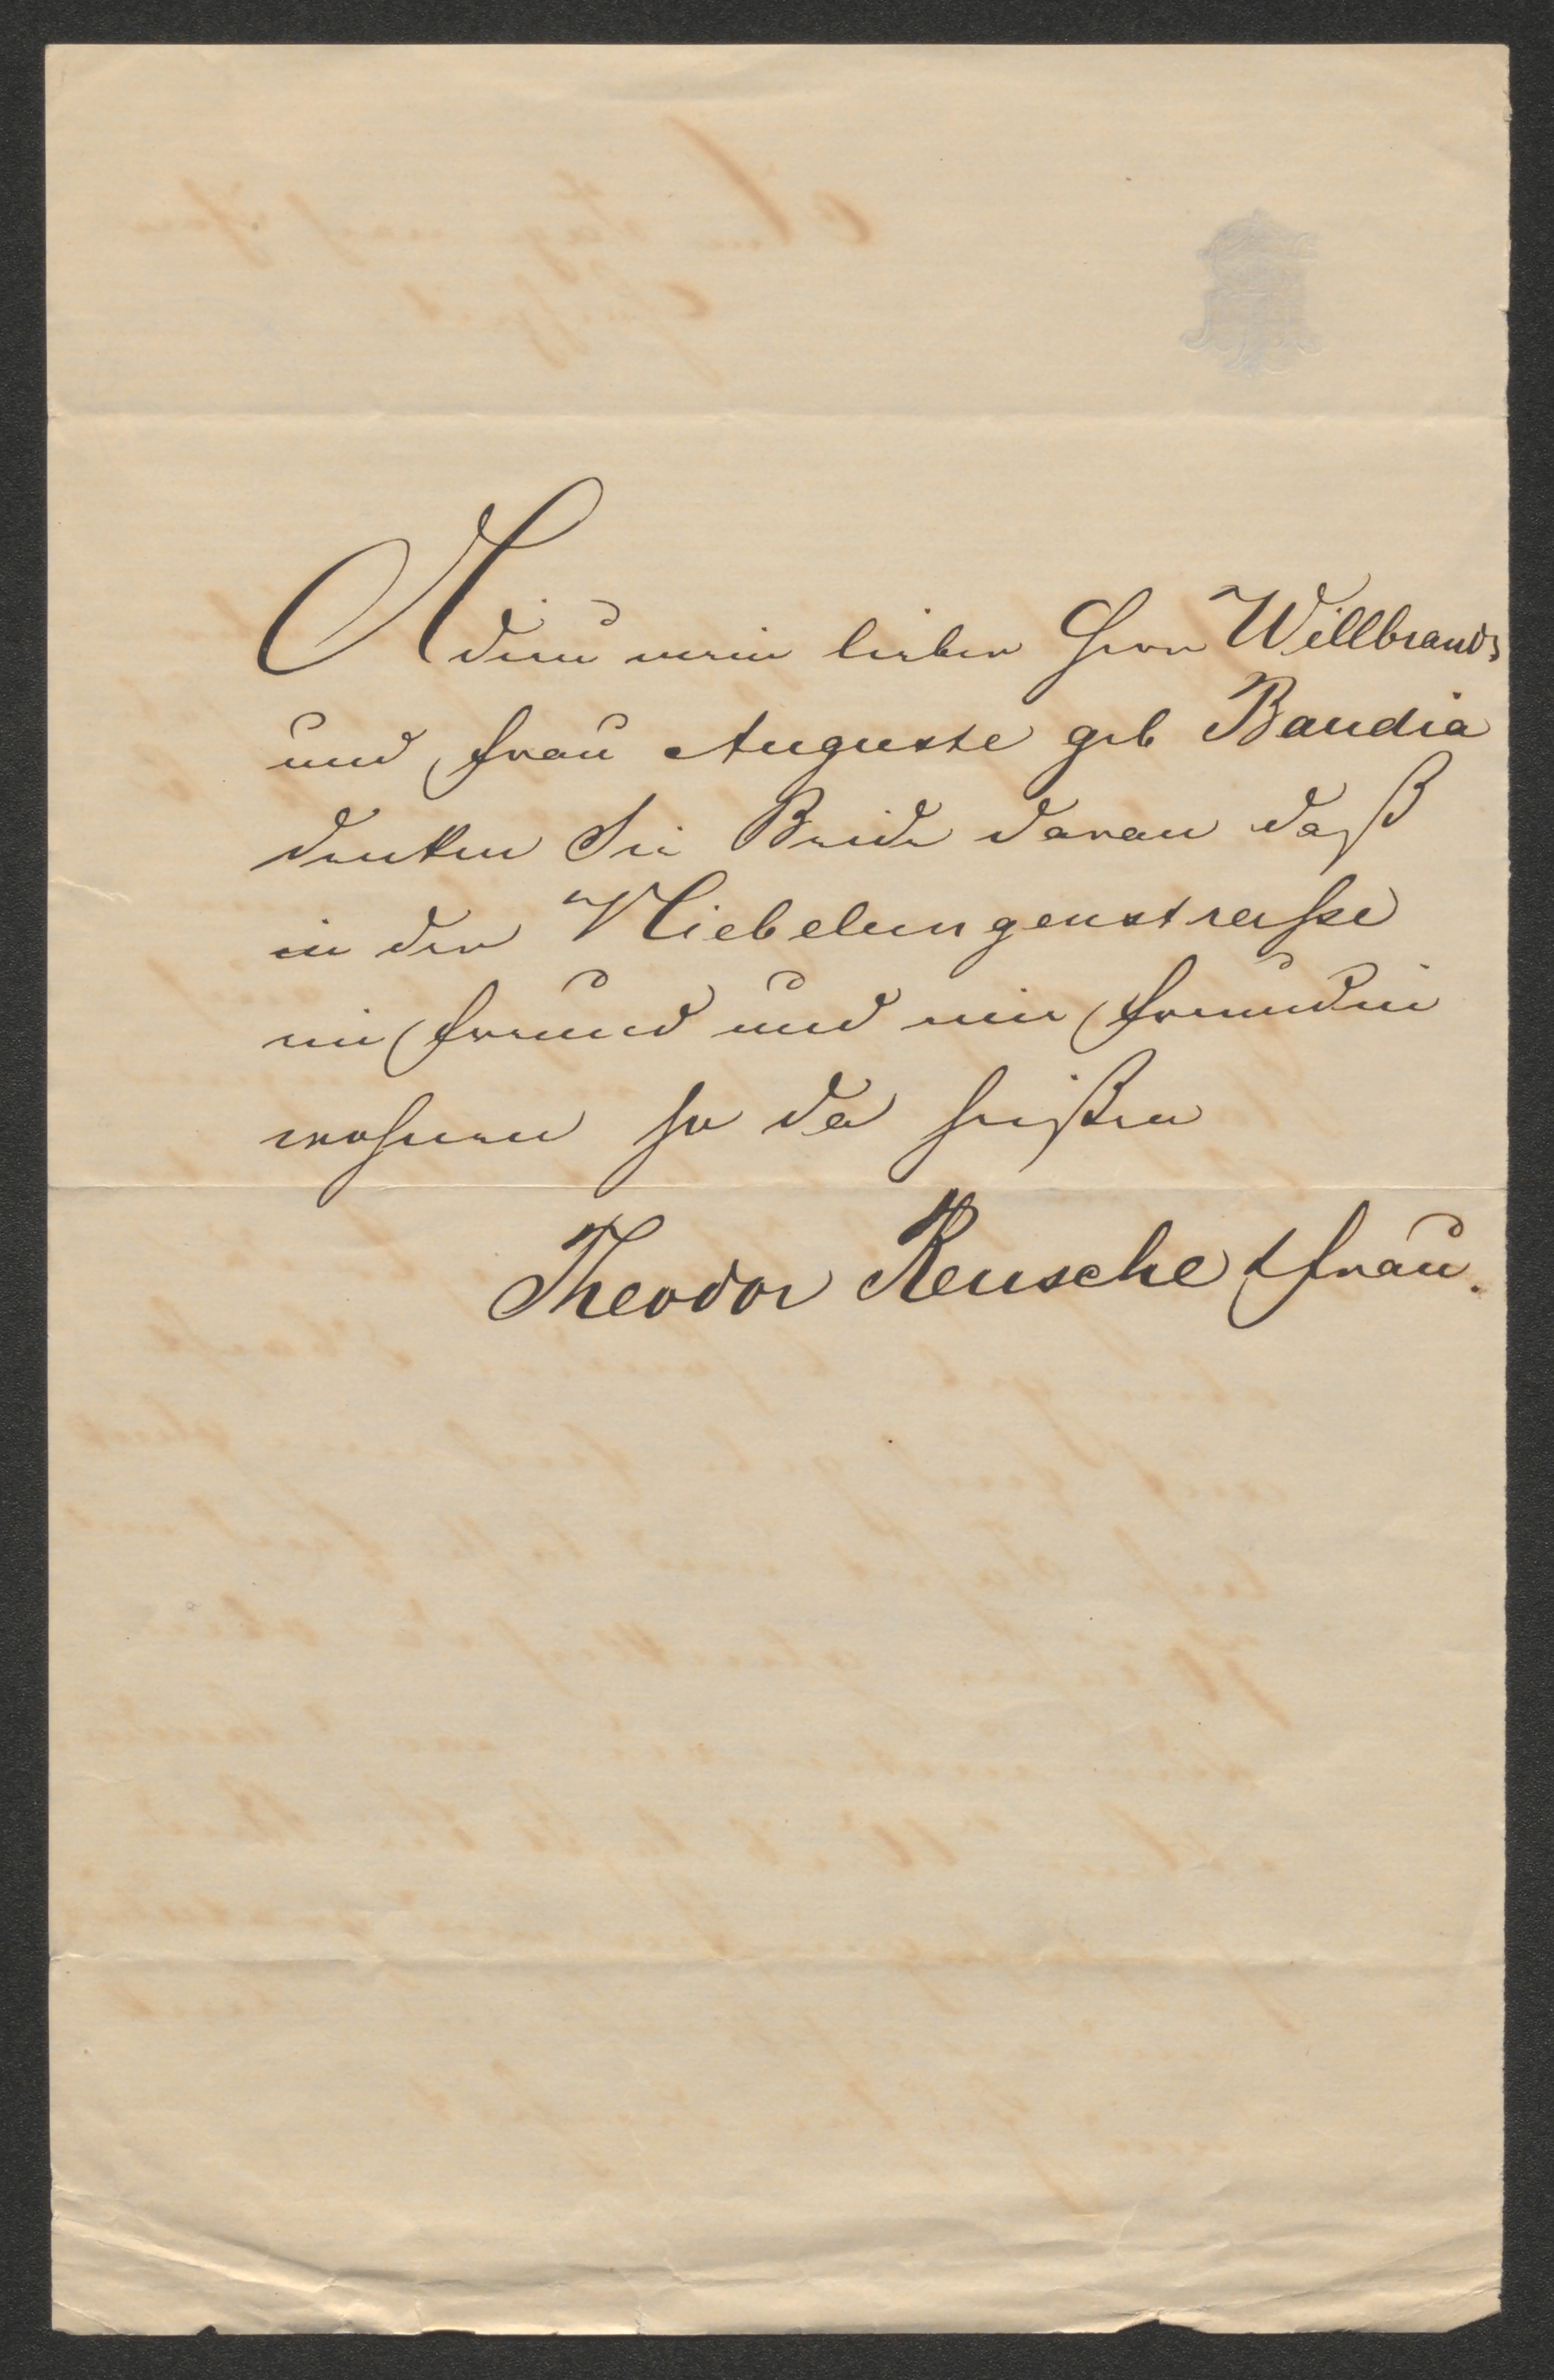 Adieu mein lieber Herr Willbrandt
und Frau Auguste geb Baudia
denken Sie Beide daran daß
in der Niebelungenstraße
ein Freund und eine Freundin
wohnen so da heißen
Theodor Reusche & Frau.